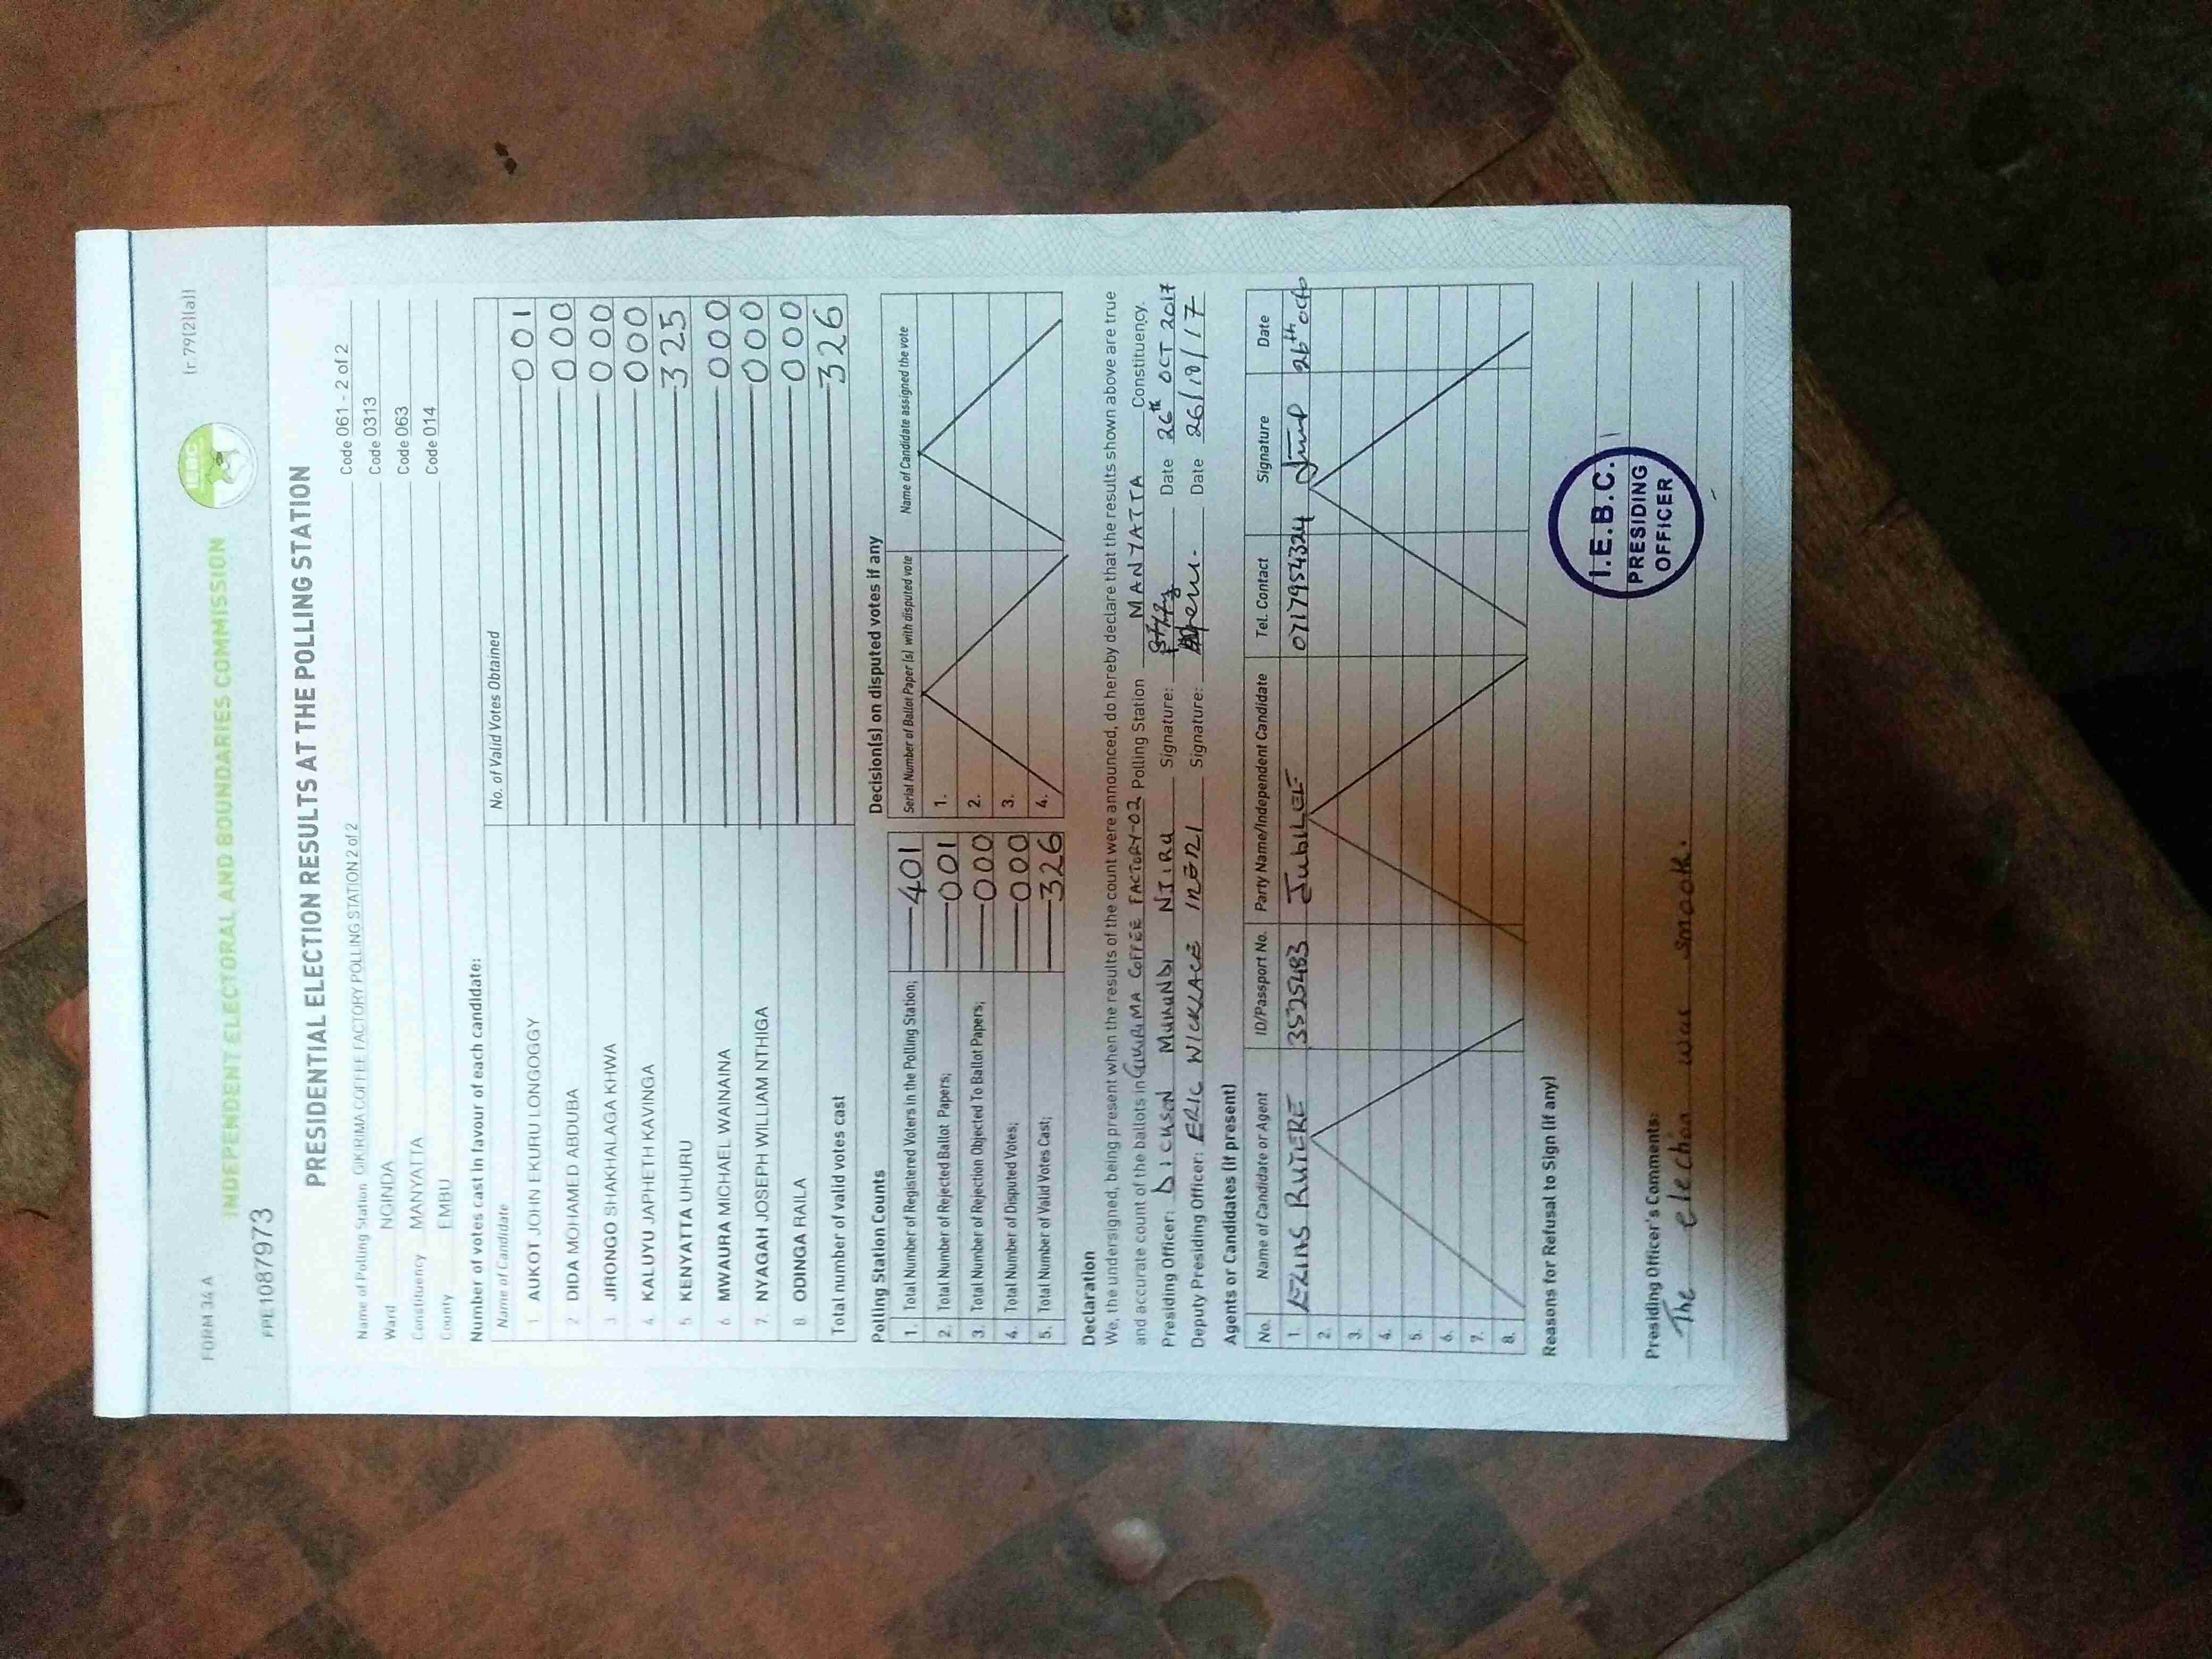 FORM 34A
(r.79(2)(a))
IEBC
INDEPENDENT ELECTORAL AND BOUNDARIES COMMISSION
FPE 1087973
PRESIDENTIAL ELECTION RESULTS AT THE POLLING STATION
Name of Polling Station GIKIRIMA COFFEE FACTORY POLLING STATION 2 of 2 Code 061 - 2 of 2
Ward NGINDA Code 0313
Constituency MANYATTA Code 063
County EMBU Code 014
Number of votes cast in favour of each candidate:
Name of Candidate No. of Valid Votes Obtained
1. AUKOT JOHN EKURU LONGOGGY 001
2. DIDA MOHAMED ABDUBA 000
3. JIRONGO SHAKHALAGA KHWA 000
4. KALUYU JAPHETH KAVINGA 000
5. KENYATTA UHURU 325
6. MWAURA MICHAEL WAINAINA 000
7. NYAGAH JOSEPH WILLIAM NTHIGA 000
8. ODINGA RAILA 000
Total number of valid votes cast 326
Polling Station Counts Decision(s) on disputed votes if any
Serial Number of Ballot Paper (s) with disputed vote Name of Candidate assigned the vote
1. Total Number of Registered Voters in the Polling Station; 401 1.
2. Total Number of Rejected Ballot Papers; 001 2.
3. Total Number of Rejection Objected To Ballot Papers; 000
4. Total Number of Disputed Votes; 000 3.
5. Total Number of Valid Votes Cast; 326 4.
Declaration
We, the undersigned, being present when the results of the count were announced, do hereby declare that the results shown above are true
and accurate count of the ballots in GIKIRIMA COFFEE FACTORY-02 Polling Station MANYATTA Constituency.
Presiding Officer: DICUSON MUKUNDI NJIRU Signature: Date 26th OCT 2017
Deputy Presiding Officer: ERIC WICKLACE Signature: Date 26/10/17
Agents or Candidates (if present)
No. Name of Candidate or Agent ID/Passport No. Party Name/Independent Candidate Tel. Contact Signature Date
1. EZIAS RUTERE 35725483 JUBILEE 0717954324 26th Octo
2.
3.
4.
5.
6.
7.
8.
Reasons for Refusal to Sign (if any)
I.E.B.C.
PRESIDING
OFFICER
Presiding Officer's Comments:
The election was smooth.